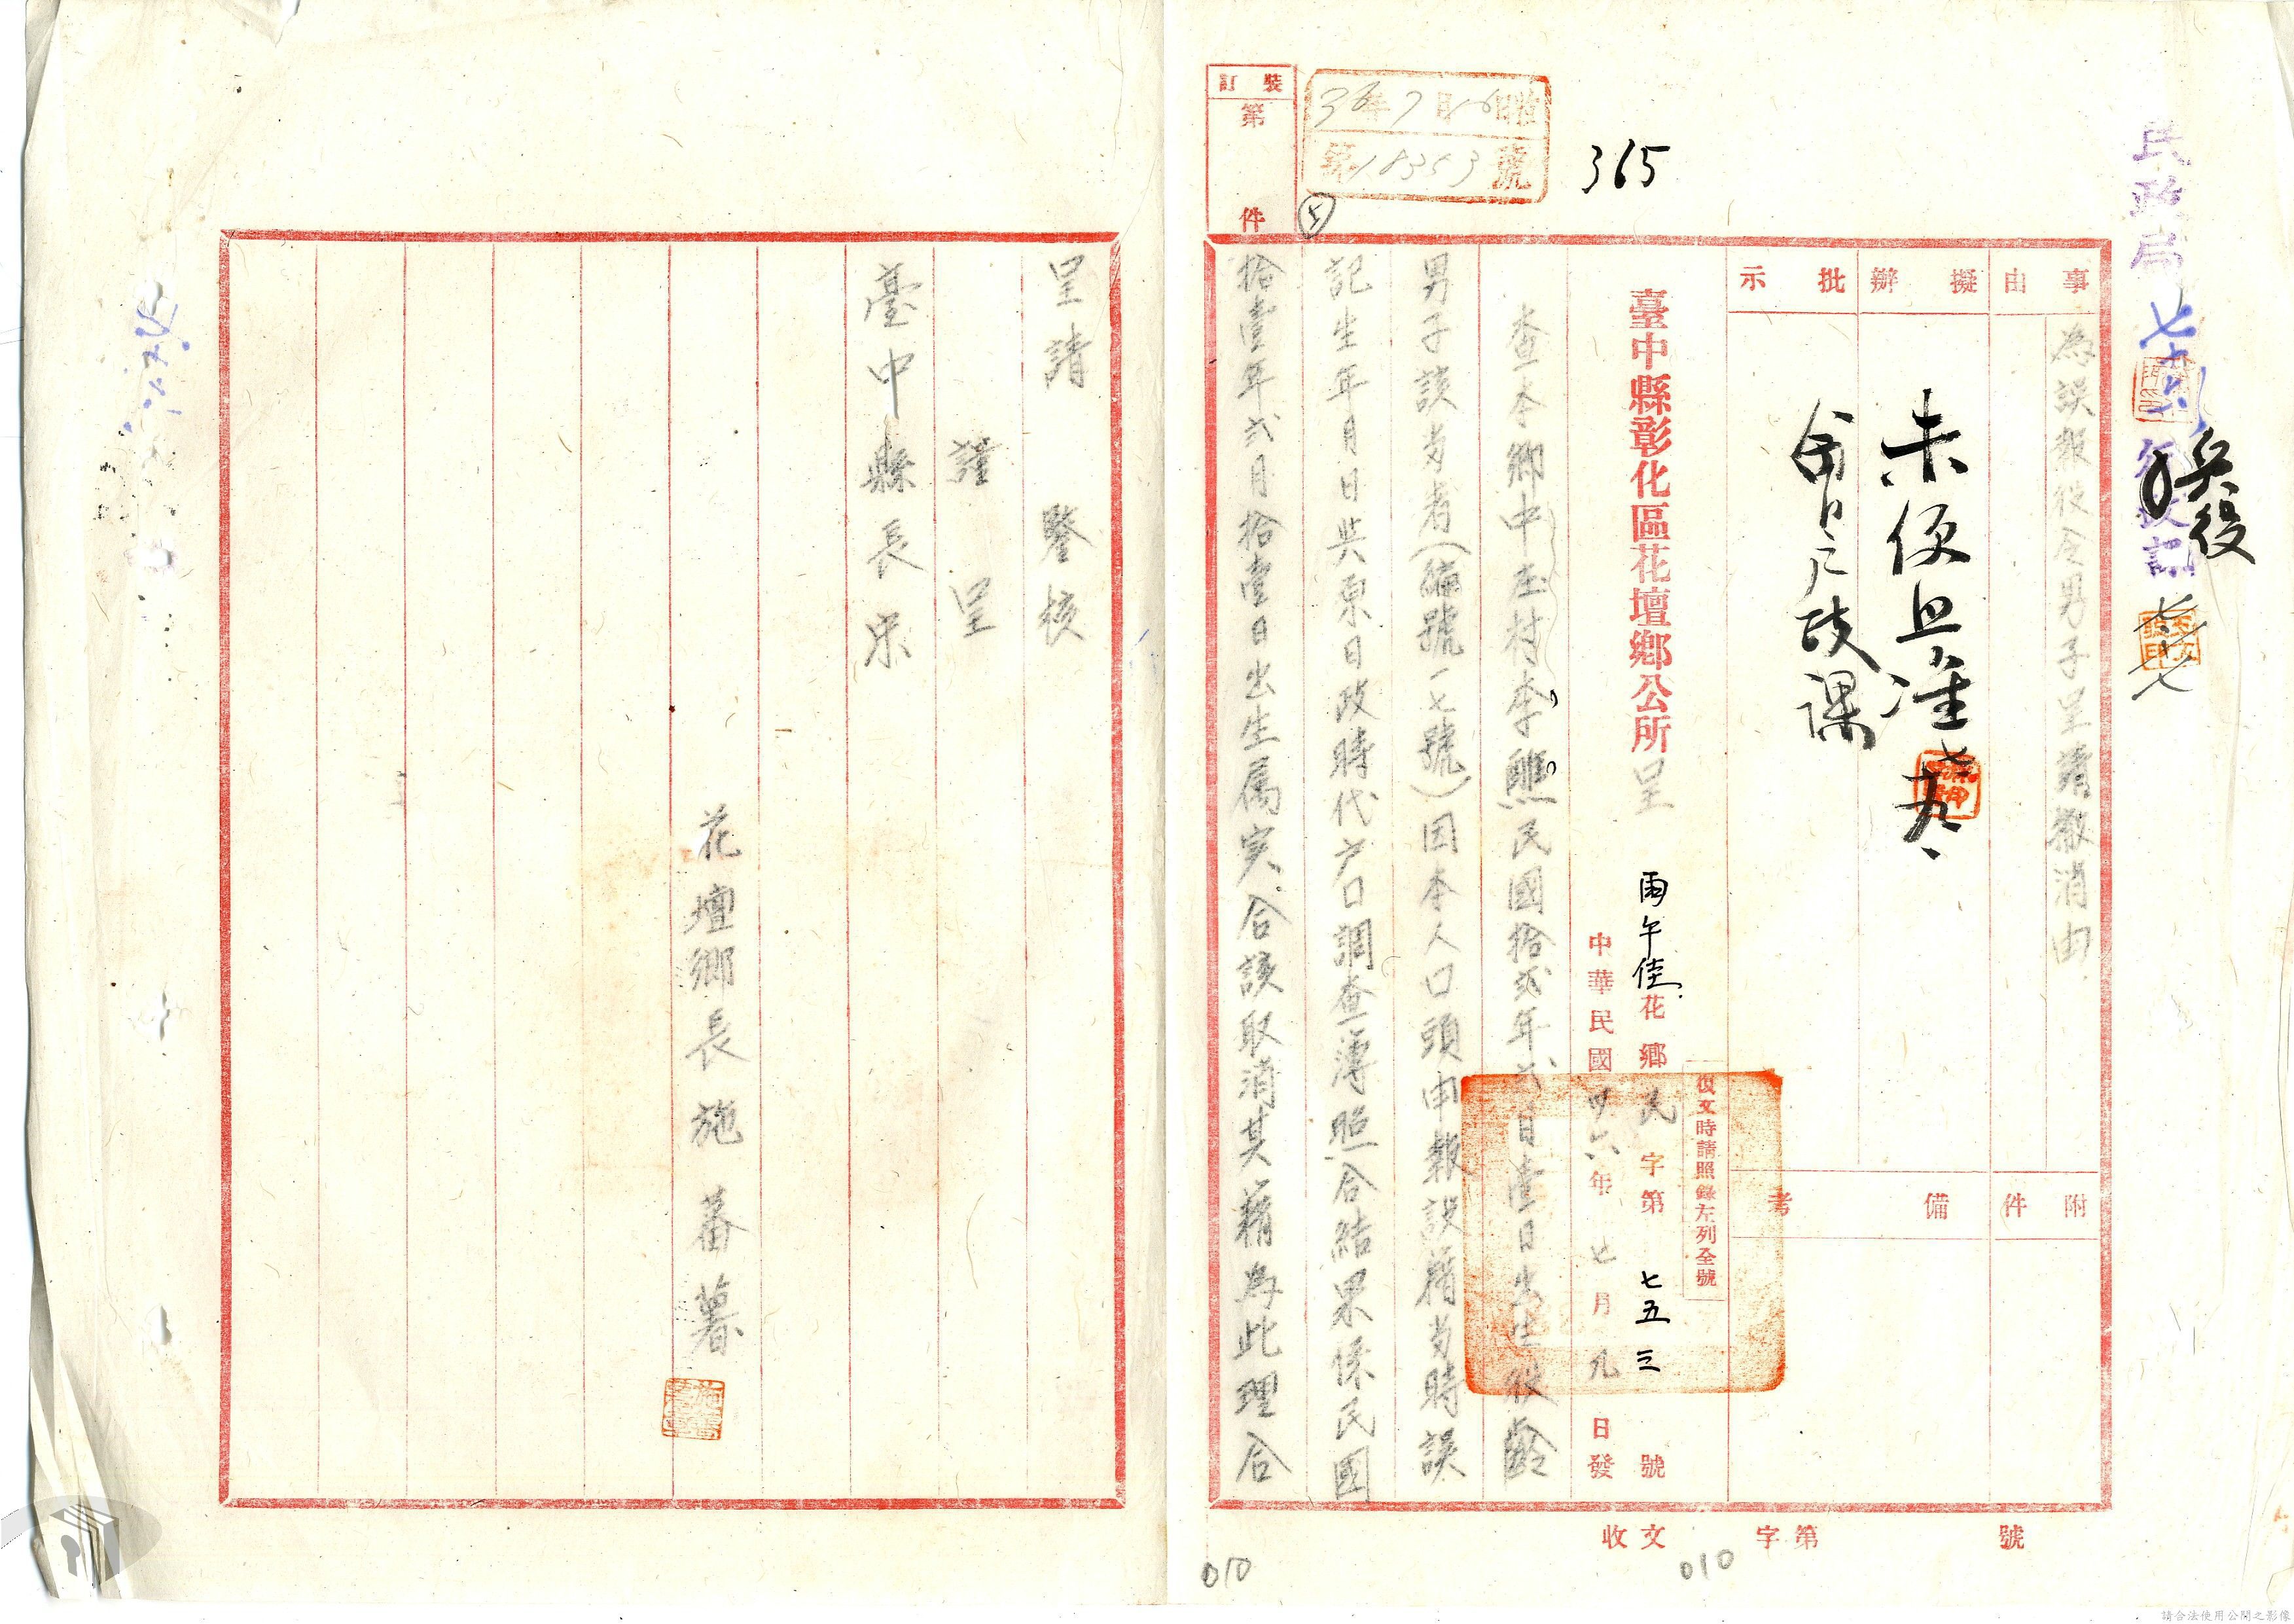 民政局
七月
收訖
兵役
七、七
事由
為誤報役令男子呈請撤消由
擬辦
未便照准
批示
會戶政課
附件
備考
復文時請照錄左列全號
臺中縣彰化區花壇鄉公所呈
雨午佳花鄉民字第七五三號
中華民國卅六年七月九日發
查本鄉中庄村李鷦民國拾弍年弍月壹日出生役齡
男子該当者(編號一七號)因本人口頭申報誤籍当時誤
記生年月日其原日政時代户口調查簿照合結果係民國
拾壹年弍月拾壹日出生属実合該取消其籍為此理合
365
36年7月16日收
第18353號
裝訂
第 件
收文 字第 號
010
010
呈請 鑒核
謹呈
臺中縣長宋
花壇鄉長施蕃薯
請合法使用公開之影像